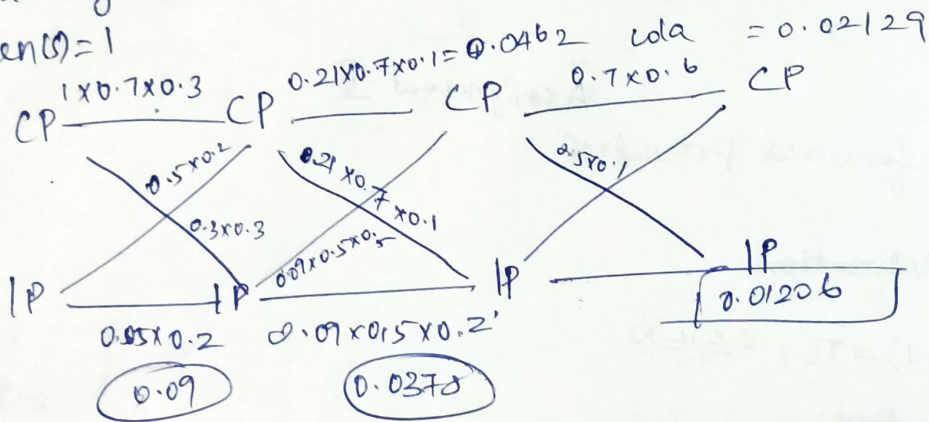 en(s) = 1
1x0.7x0.3
0.21x0.7x0.1 = 0.0462 cola = 0.02129
0.7x0.6
CP CP CP CP
0.5x0.2
0.3x0.3
0.21x0.7x0.1
0.09x0.5x0.5
0.5x0.1
IP IP IP IP
0.01206
0.5x0.2 0.09x0.5x0.2
0.09 0.0378